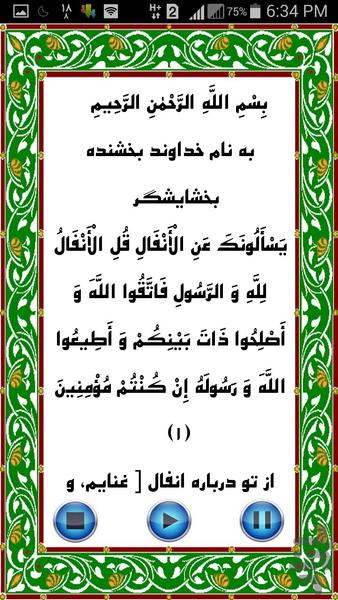 ۱۸ H+ 2 75% 6:34 PM
بِسْمِ اللَّهِ الرَّحْمٰنِ الرَّحِيمِ
به نام خداوند بخشنده
بخشایشگر
يَسْأَلُونَكَ عَنِ الْأَنْفَالِ قُلِ الْأَنْفَالُ
لِلَّهِ وَ الرَّسُولِ فَاتَّقُوا اللَّهَ وَ
أَصْلِحُوا ذَاتَ بَيْنِكُمْ وَ أَطِيعُوا
اللَّهَ وَ رَسُولَهُ إِنْ كُنْتُمْ مُؤْمِنِينَ
(۱)
از تو درباره انفال [ غنایم، و